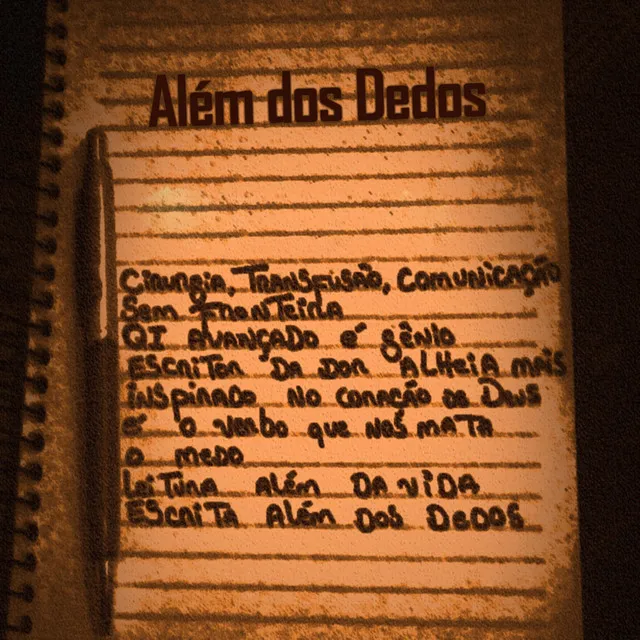 Além dos Dedos
Cirurgia, Transfusão, Comunicação
Sem Fronteira
QI AVANÇADO é gênio
Escritor da dor alheia mais
inspirado no coração de Deus
é o verbo que nos mata
o medo
Leitura além da vida
Escrita além dos Dedos